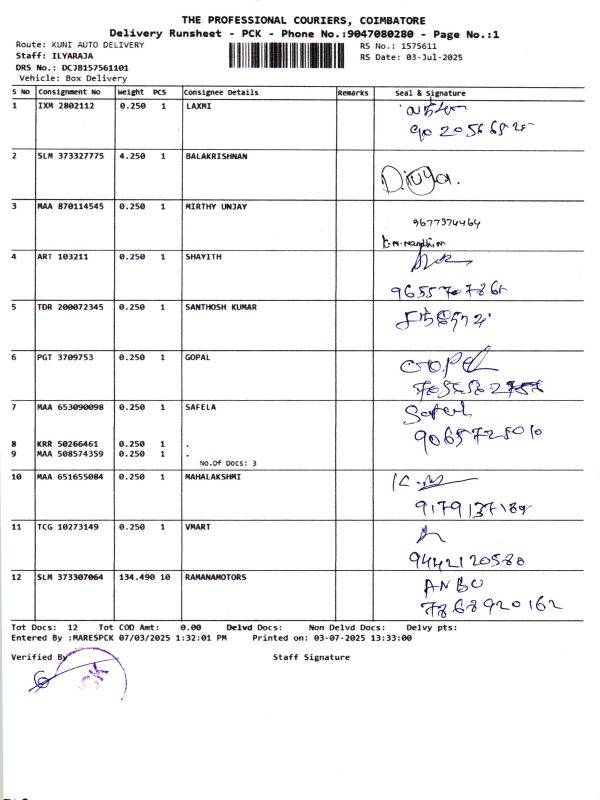 THE PROFESSIONAL COURIERS, COIMBATORE
Delivery Runsheet - PCK - Phone No.:9047080280 - Page No.:1
Route: KUNI AUTO DELIVERY
RS No.: 1575611
Staff: ILYARAJA
RS Date: 03-Jul-2025
DRS No.: DCJB157561101
Vehicle: Box Delivery
S No Consignment No Weight PCS Consignee Details Remarks Seal & Signature
1 IXM 2802112 0.250 1 LAXMI
2 SLM 373327775 4.250 1 BALAKRISHNAN
Divya.
3 MAA 870114545 0.250 1 MIRTHY UNJAY
9677374464
4 ART 103211 0.250 1 SHAYITH
5 TDR 200072345 0.250 1 SANTHOSH KUMAR
6 PGT 3709753 0.250 1 GOPAL
GOPAL
7 MAA 653090098 0.250 1 SAFELA
8 KRR 50266461 0.250 1 .
9 MAA 508574359 0.250 1 .
No.Of Docs: 3
10 MAA 651655084 0.250 1 MAHALAKSHMI
11 TCG 10273149 0.250 1 VMART
9442120580
12 SLM 373307064 134.490 10 RAMANAMOTORS
ANBU
7868920162
Tot Docs: 12 Tot COD Amt: 0.00 Delvd Docs: Non Delvd Docs: Delvy pts:
Entered By :MARESPCK 07/03/2025 1:32:01 PM Printed on: 03-07-2025 13:33:00
Verified By Staff Signature